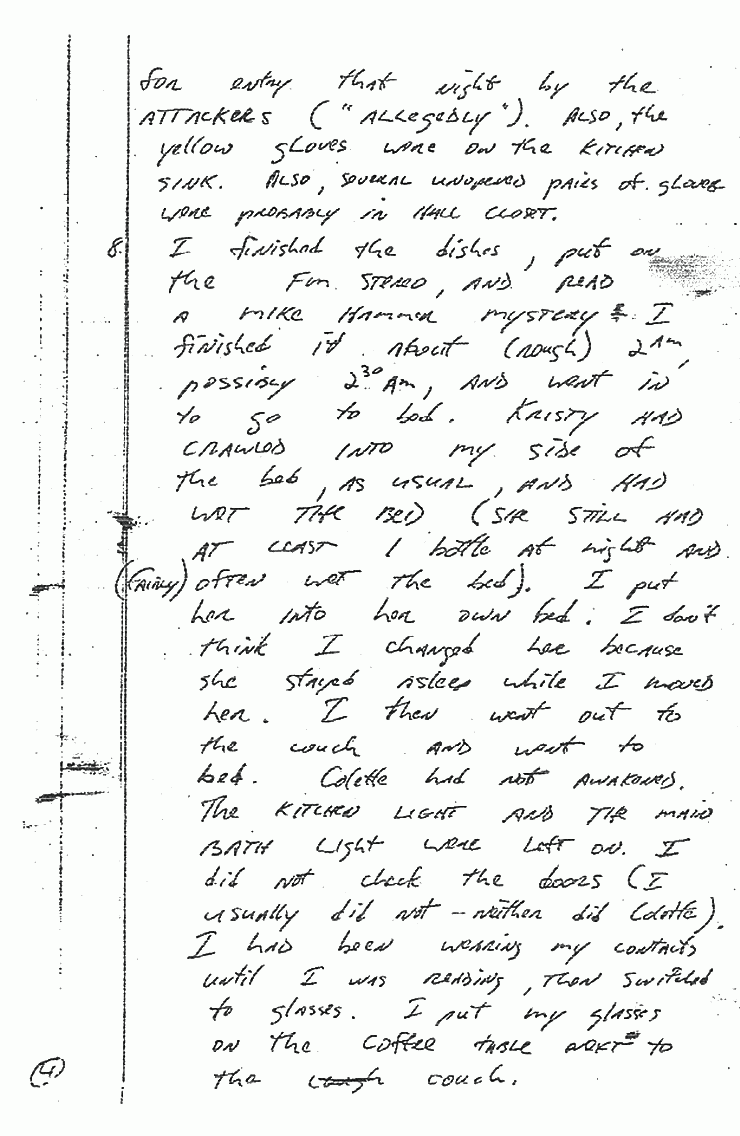 for entry that night by the
ATTACKERS ("ALLegedLy"). ALSO, the
yellow gLoves were on the KITCHEN
SINK. ALSO, several unopened pairs of gloves
were PROBABLY in HALL CLOSET.
8. I finished the dishes, put on
the Fm STEREO, AND READ
A MIKE HAMMER MYSTERY. I
finished it About (rough) 2 Am,
possibly 2 30 Am, AND went in
to go to bed. KRISTY HAD
CRAWLED INTO my side of
the bed, AS USUAL, AND HAD
WET THE BED (SHE STILL HAD
AT LEAST 1 bottle AT night AND
(FAIRLY) OFTEN wet the bed). I put
her INTO her OWN bed. I don't
think I changed her because
she stayed asleep while I moved
her. I then went out to
the couch AND went to
bed. Colette had not AWAKENED.
The KITCHEN LIGHT AND THE MAIN
BATH LIght were Left ON. I
did not check the doors (I
usually did not - neither did Colette).
I had been wearing my contacts
until I was READING, then switched
to glasses. I put my glasses
ON the coffee TABLE NEXT to
the couch couch.
(4)